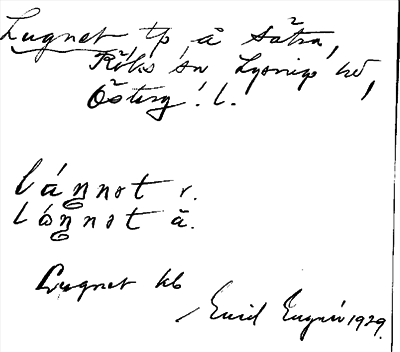 Lugnet tp å Sätra,
Röks sn Lysings hd,
Österg. l.
lágnot r.
lógnot ä.
Lugnet kb
1929.